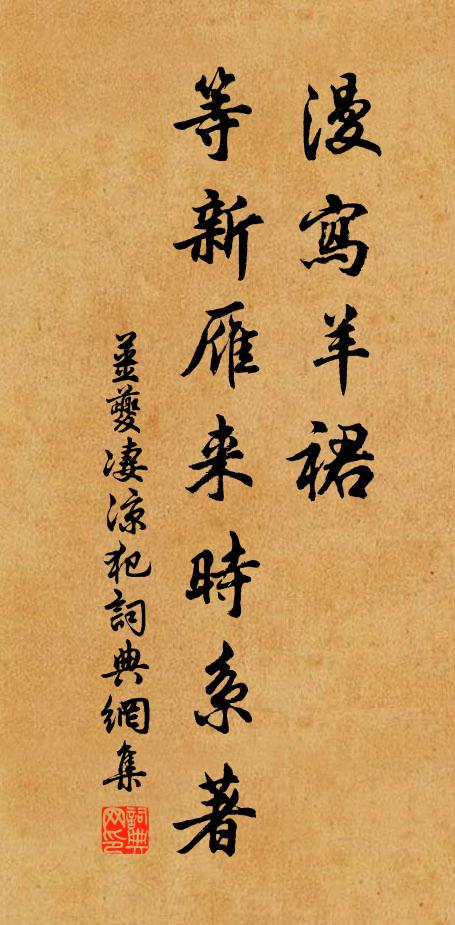 漫寫羊裙
等新雁来時系著
姜夔凄涼犯詞典網集
詞典
网印